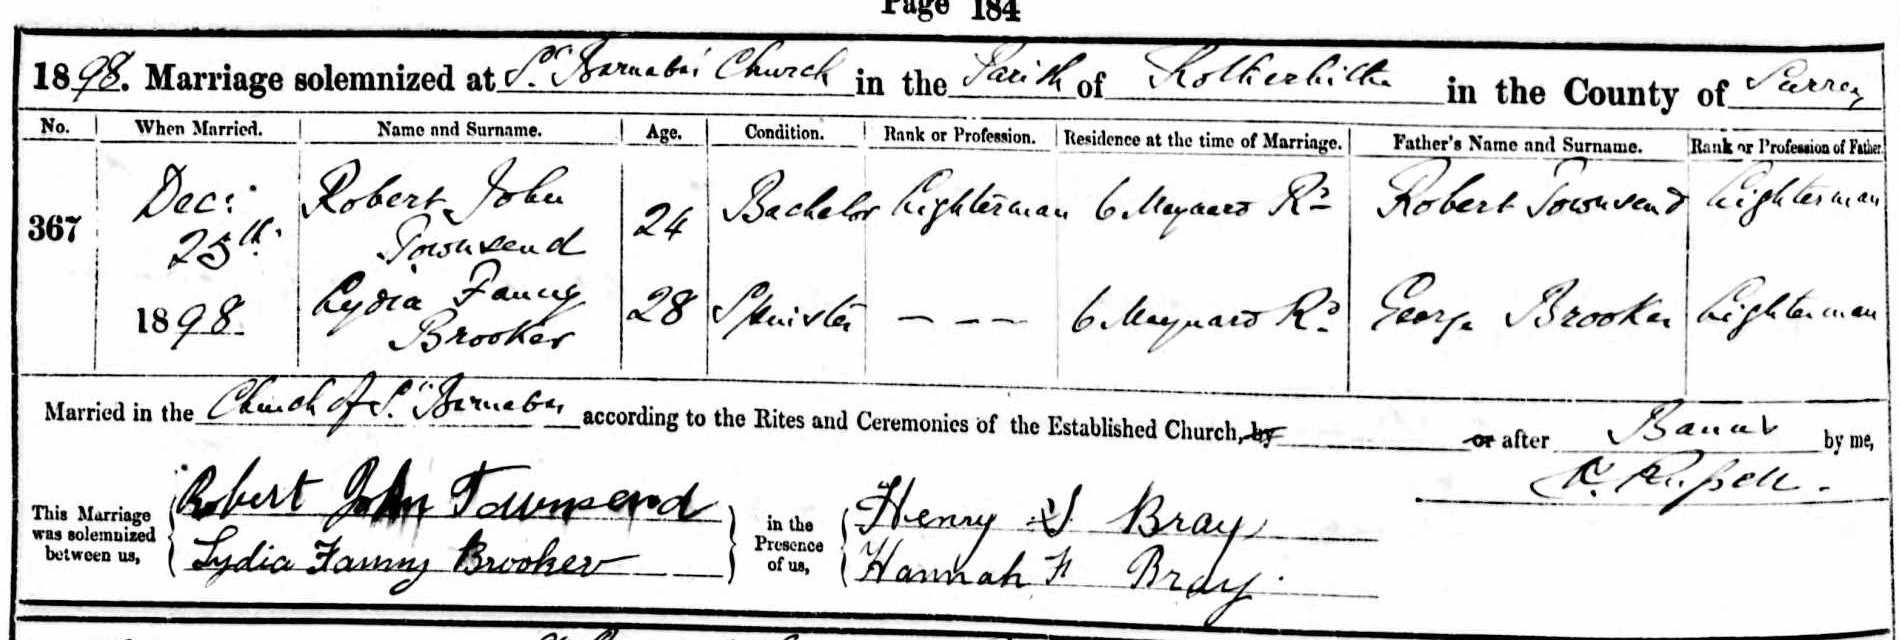 Page 184
1898. Marriage solemnized at St. Barnabas' Church in the Parish of Rotherhithe in the County of Surrey
No. When Married. Name and Surname. Age. Condition. Rank or Profession. Residence at the time of Marriage. Father's Name and Surname. Rank or Profession of Father.
367 Dec: 25th. 1898 Robert John Townsend 24 Bachelor Lighterman 6 Maynard Rd Robert Townsend Lighterman
Lydia Fanny Brooker 28 Spinster - - - 6 Maynard Rd George Brooker Lighterman
Married in the Church of St. Barnabas according to the Rites and Ceremonies of the Established Church, by or after Banns by me,
Russell.
This Marriage was solemnized between us, Robert John Townsend in the Presence of us, Henry S Bray
Lydia Fanny Brooker Hannah F Bray.